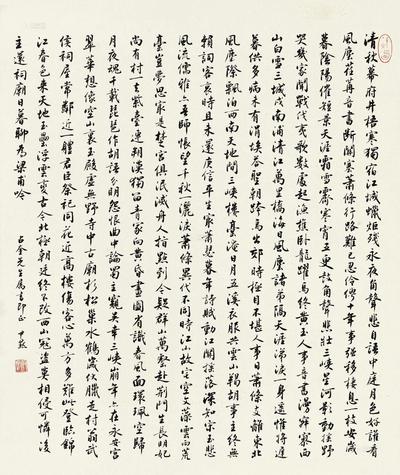 清秋幕府井梧寒獨宿江城蠟炬殘永夜角聲悲自語中庭月色好誰看
風塵荏苒音書斷關塞蕭條行路難已忍伶俜十年事强移棲息一枝安歲
暮陰陽催短景天涯霜雪霽寒宵五更鼓角聲悲壯三峽星河影動搖野
哭幾家聞戰伐夷歌數處起漁樵臥龍躍馬終黄土人事音書漫寂寥西
山白雪三城戍南浦清江萬里橋海内風塵諸弟隔天涯涕淚一身遥惟將遲
暮供多病未有涓埃答聖朝跨馬出郊時極目不堪人事日蕭條支離東北
風塵際飄泊西南天地間三峽樓臺淹日月五溪衣服共雲山羯胡事主終無
賴詞客哀時且未還庾信平生最蕭瑟暮年詩賦動江關搖落深知宋玉悲
風流儒雅亦吾師悵望千秋一灑淚蕭條異代不同時江山故宅空文藻雲雨荒
臺豈夢思最是楚宫俱泯滅舟人指點到今疑群山萬壑赴荆門生長明妃
尚有村一去紫臺連朔漠獨留青冢向黄昏畫圖省識春風面環珮空歸
月夜魂千載琵琶作胡語分明怨恨曲中論蜀主窺吳幸三峽崩年亦在永安宫
翠華想像空山裏玉殿虛無野寺中古廟杉松巢水鶴歲伏臘走村翁武
侯祠屋常鄰近一體君臣祭祀同花近高樓傷客心萬方多難此登臨錦
江春色來天地玉壘浮雲變古今北極朝廷終不改西山寇盜莫相侵可憐後
主還祠廟日暮聊爲梁甫吟
先生屬書即正 尹默